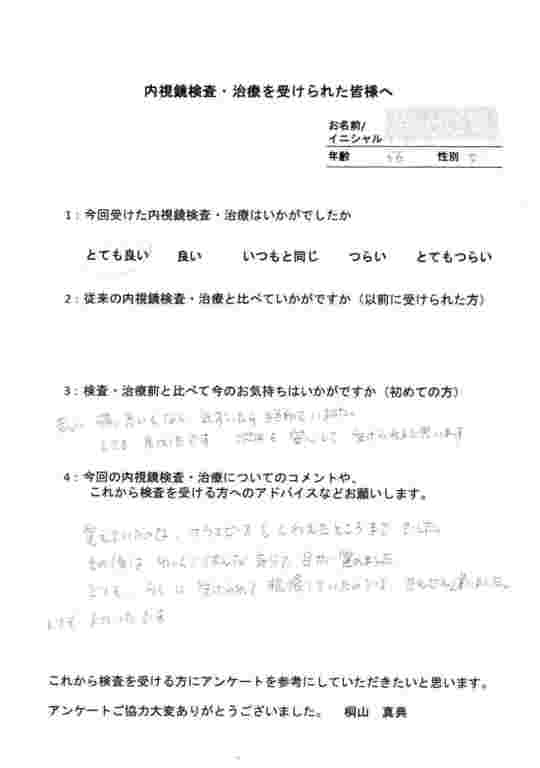 内視鏡検査・治療を受けられた皆様へ
お名前/
イニシャル
年齢 性別
1：今回受けた内視鏡検査・治療はいかがでしたか
とても良い 良い いつもと同じ つらい とてもつらい
2：従来の内視鏡検査・治療と比べていかがですか（以前に受けられた方）
3：検査・治療前と比べて今のお気持ちはいかがですか（初めての方）
気づいたら
とても 良かったです 次回も 安心して 受けられると思います
4：今回の内視鏡検査・治療についてのコメントや、
これから検査を受ける方へのアドバイスなどお願いします。
覚えているのは、マウスピースを くわえたところまで でした。
その後は 自分で 目が覚めました
とても、らくに 受けられて 想像していたのとは、ぜんぜん違いました。
とても よかったです
これから検査を受ける方にアンケートを参考にしていただきたいと思います。
アンケートご協力大変ありがとうございました。 桐山 真典